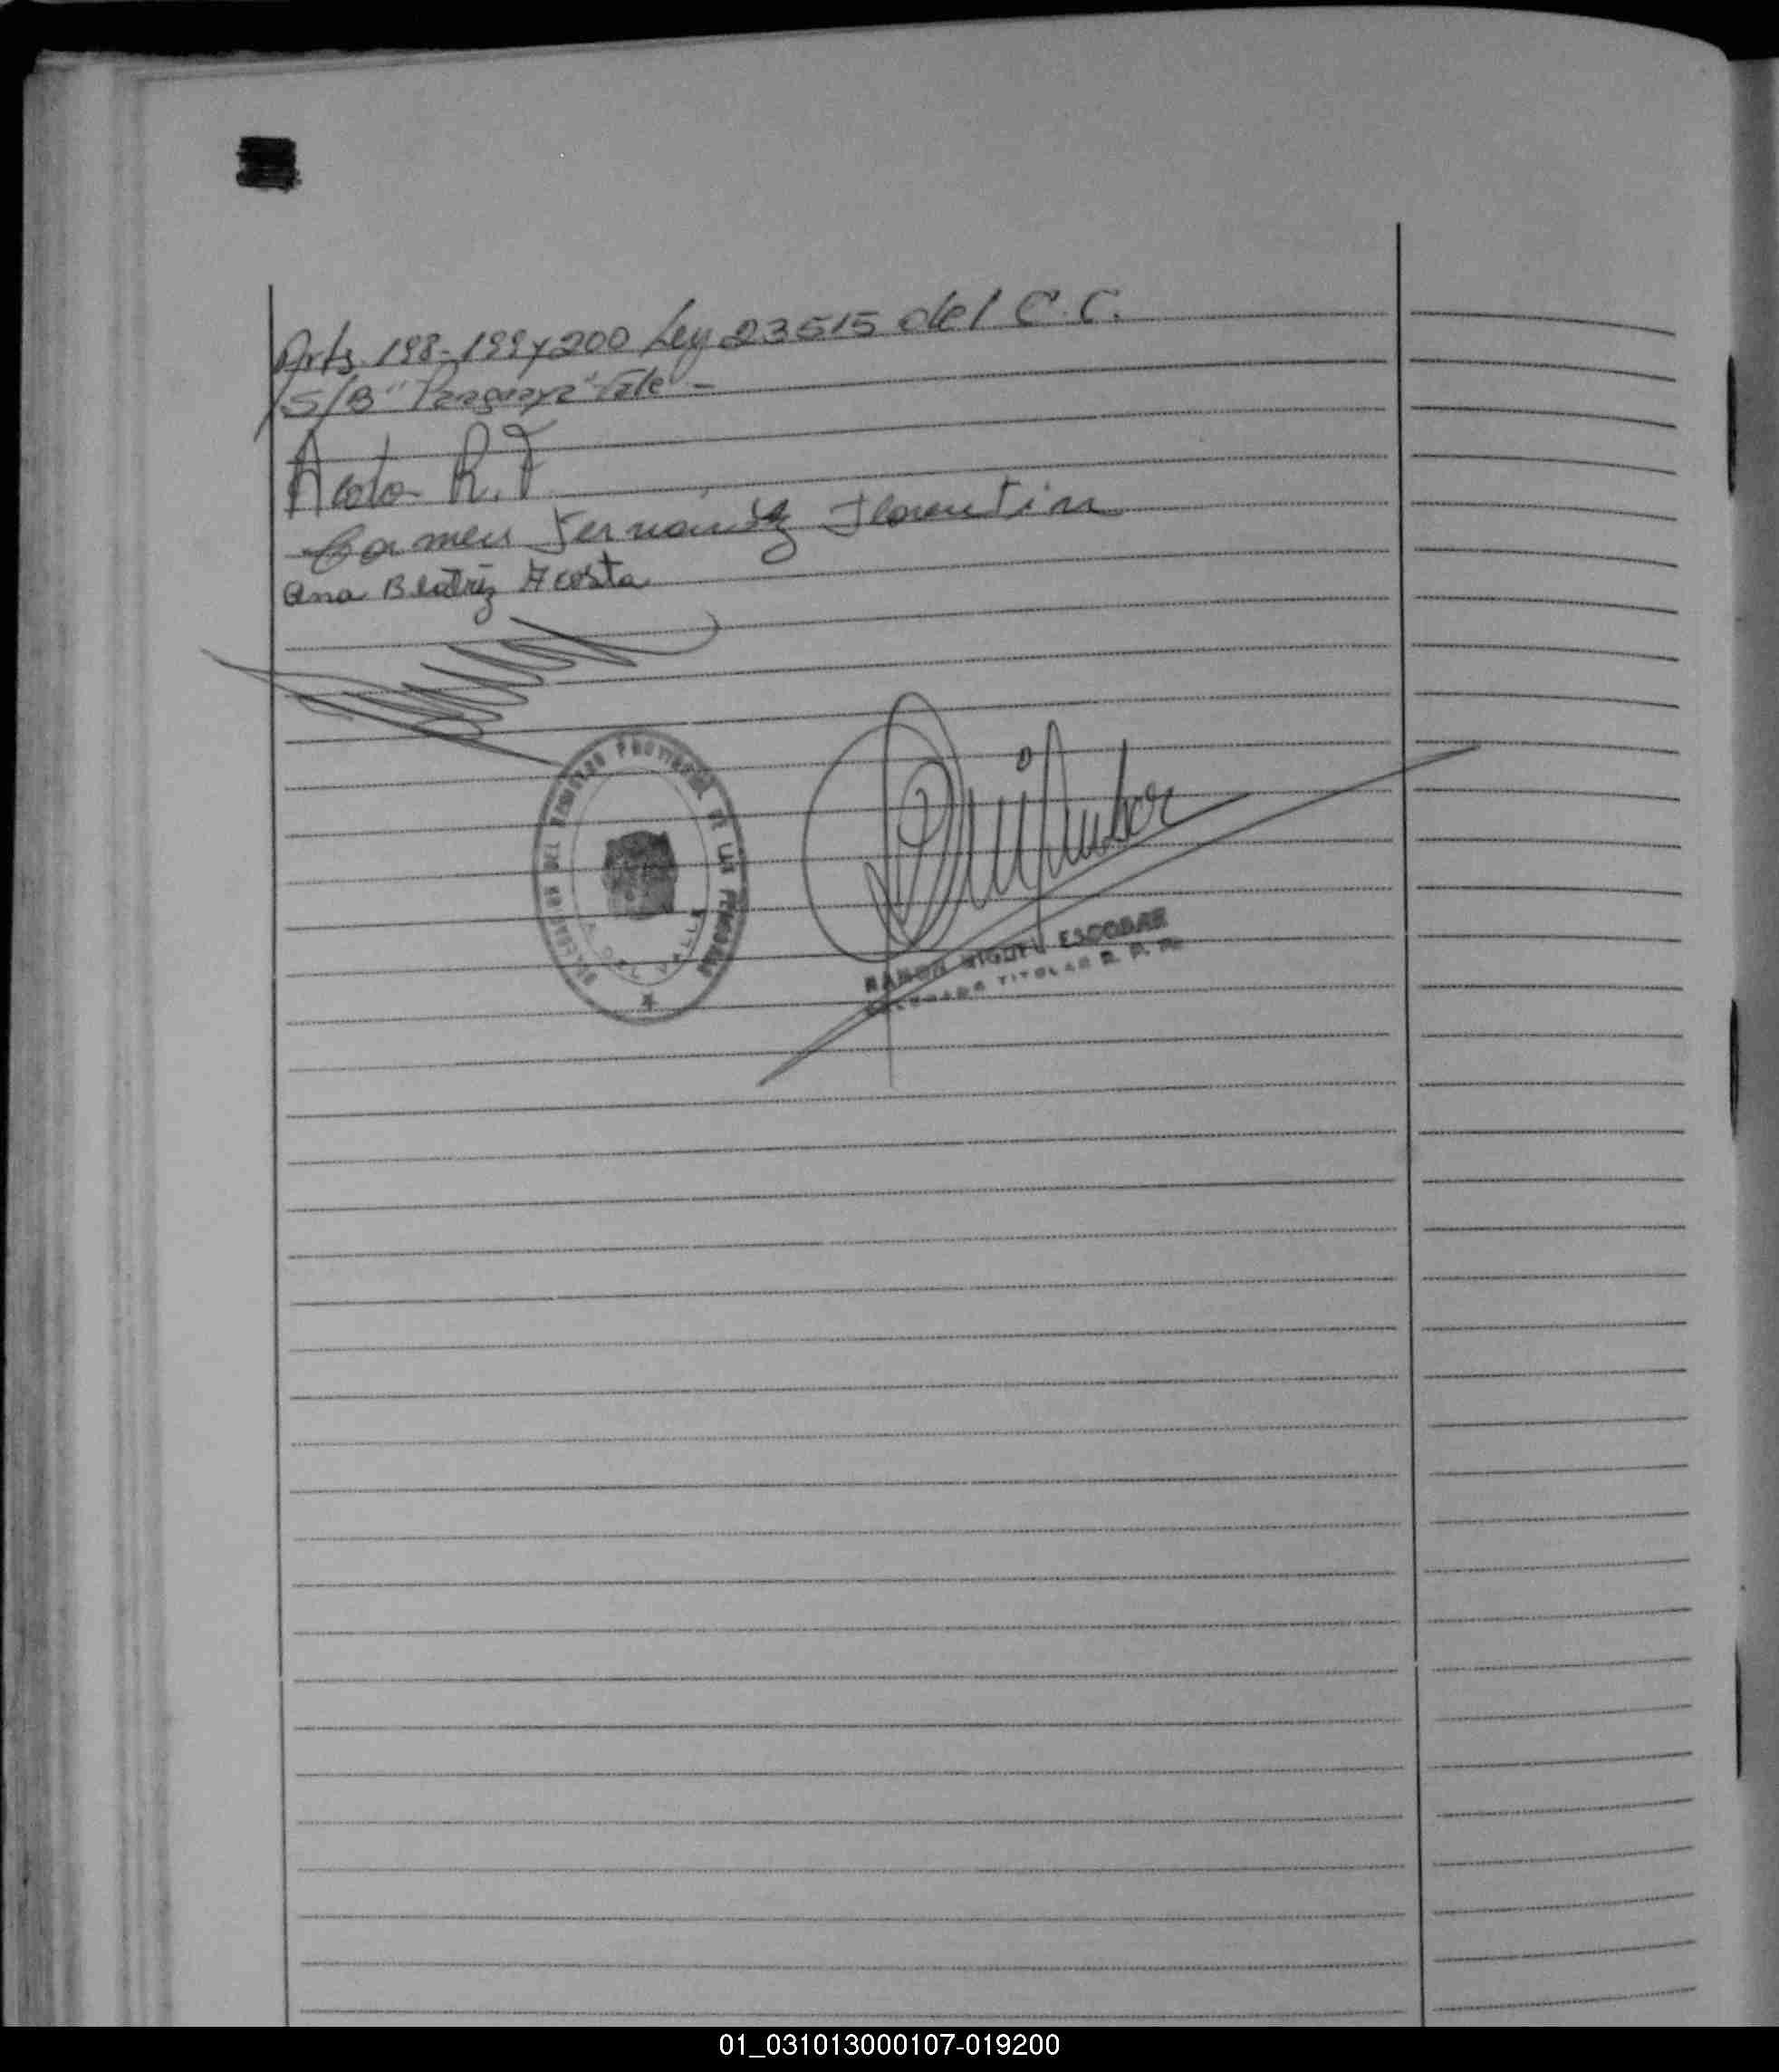 Arts. 198-199 y 200 Ley 23515 del C.C.
S/B "Paraguaya" Vale -
R. F.
Carmen Fernández Florentin
Ana Beatriz Acosta
DEL REGISTRO PROVINCIAL DE LAS PERSONAS
VALLE
RAMON MIGUEL ESCOBAR
TITULAR R. P. P.
01_031013000107-019200